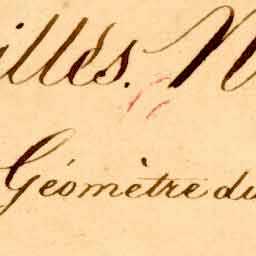 illés. N
Géomètre du